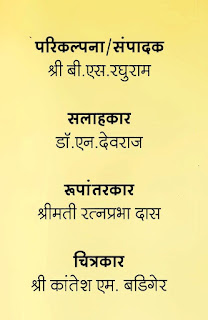 परिकल्पना/संपादक
श्री बी.एस.रघुराम
सलाहकार
डॉ.एन.देवराज
रूपांतरकार
श्रीमती रत्नप्रभा दास
चित्रकार
श्री कांतेश एम. बडिगेर